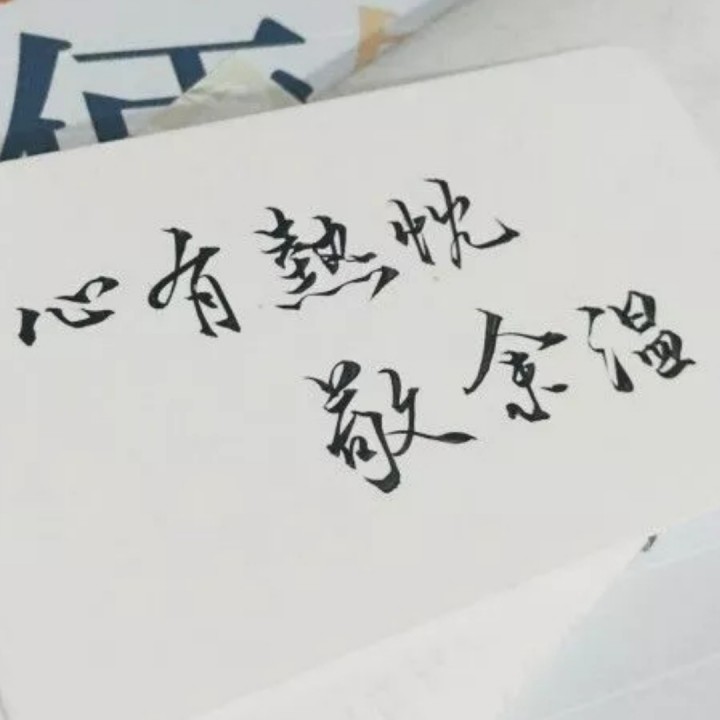 心有熱忱
敬余温